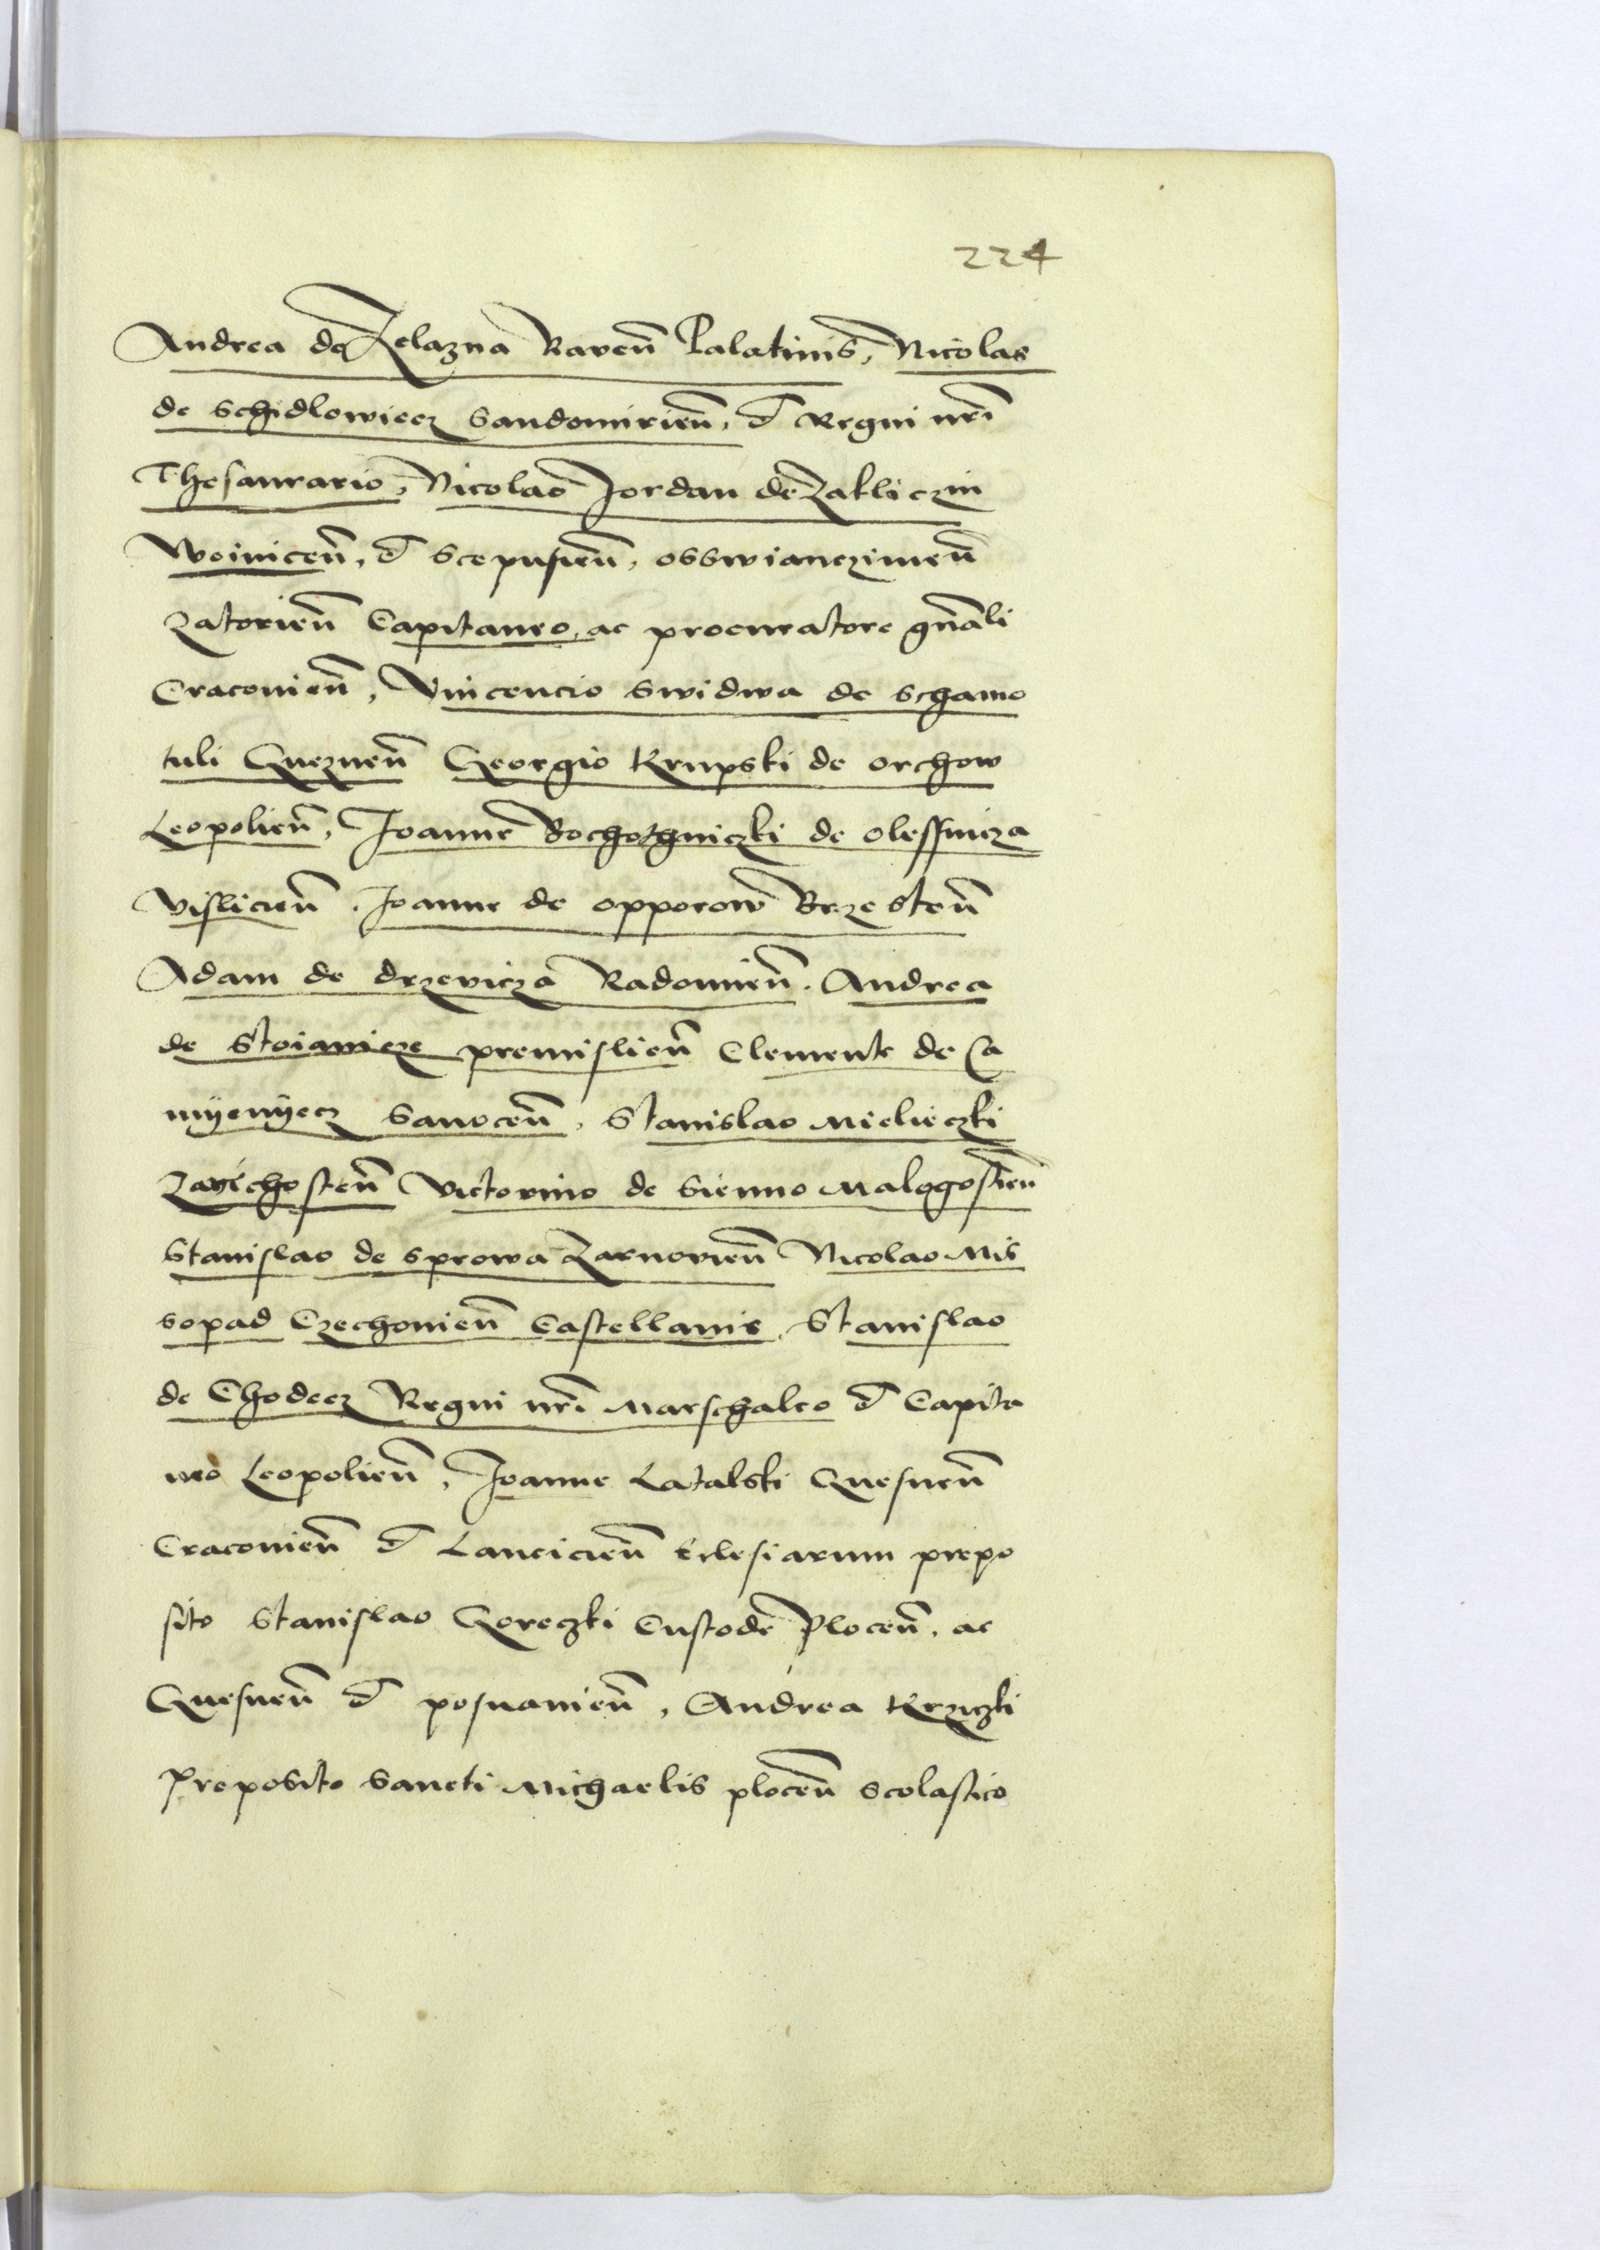 224
Andrea de Zelazna Raven̄ Palatinis, Nicolao
de Schidlowiecz Sandomirien̄, et Regni nr̄i
Thesaurario, Nicolao Jordan de Zakliczin
Woinicen̄, et Scepusien̄, osswianczimen̄
Zatorien̄ Capitaneo, ac procuratore gn̄ali
Cracovien̄, Vincencio Swidwa de Schamo
tuli Gneznen̄ Georgio Krupski de orchow
Leopolien̄, Joanne Bochothniczki de olessnicza
Vislicien̄. Joanne de opporow Brzesten̄
Adam de drzevicza Radomien̄. Andrea
de Stoiawicze premislien̄ Clemente de Ca
mÿenÿecz Sanocen̄, Stanislao Mielieczki
Zavichosten̄ Victorino de Sienno Malogostien̄
Stanislao de Sprowa Zarnovien̄ Nicolao Mis
sopad Czechovien̄ Castellanis, Stanislao
de Chodecz Regni nr̄i Marschalco et Capita
neo Leopolien̄, Joanne Latalski Gnesnen̄
Cracovien̄ et Lancicien̄ Eclesiarum prepo
sito Stanislao Goreczki Custode Plocen̄. ac
Gnesnen̄ et posnanien̄, Andrea Krziczki
Preposito Sancti Michaelis plocen̄ scolastico